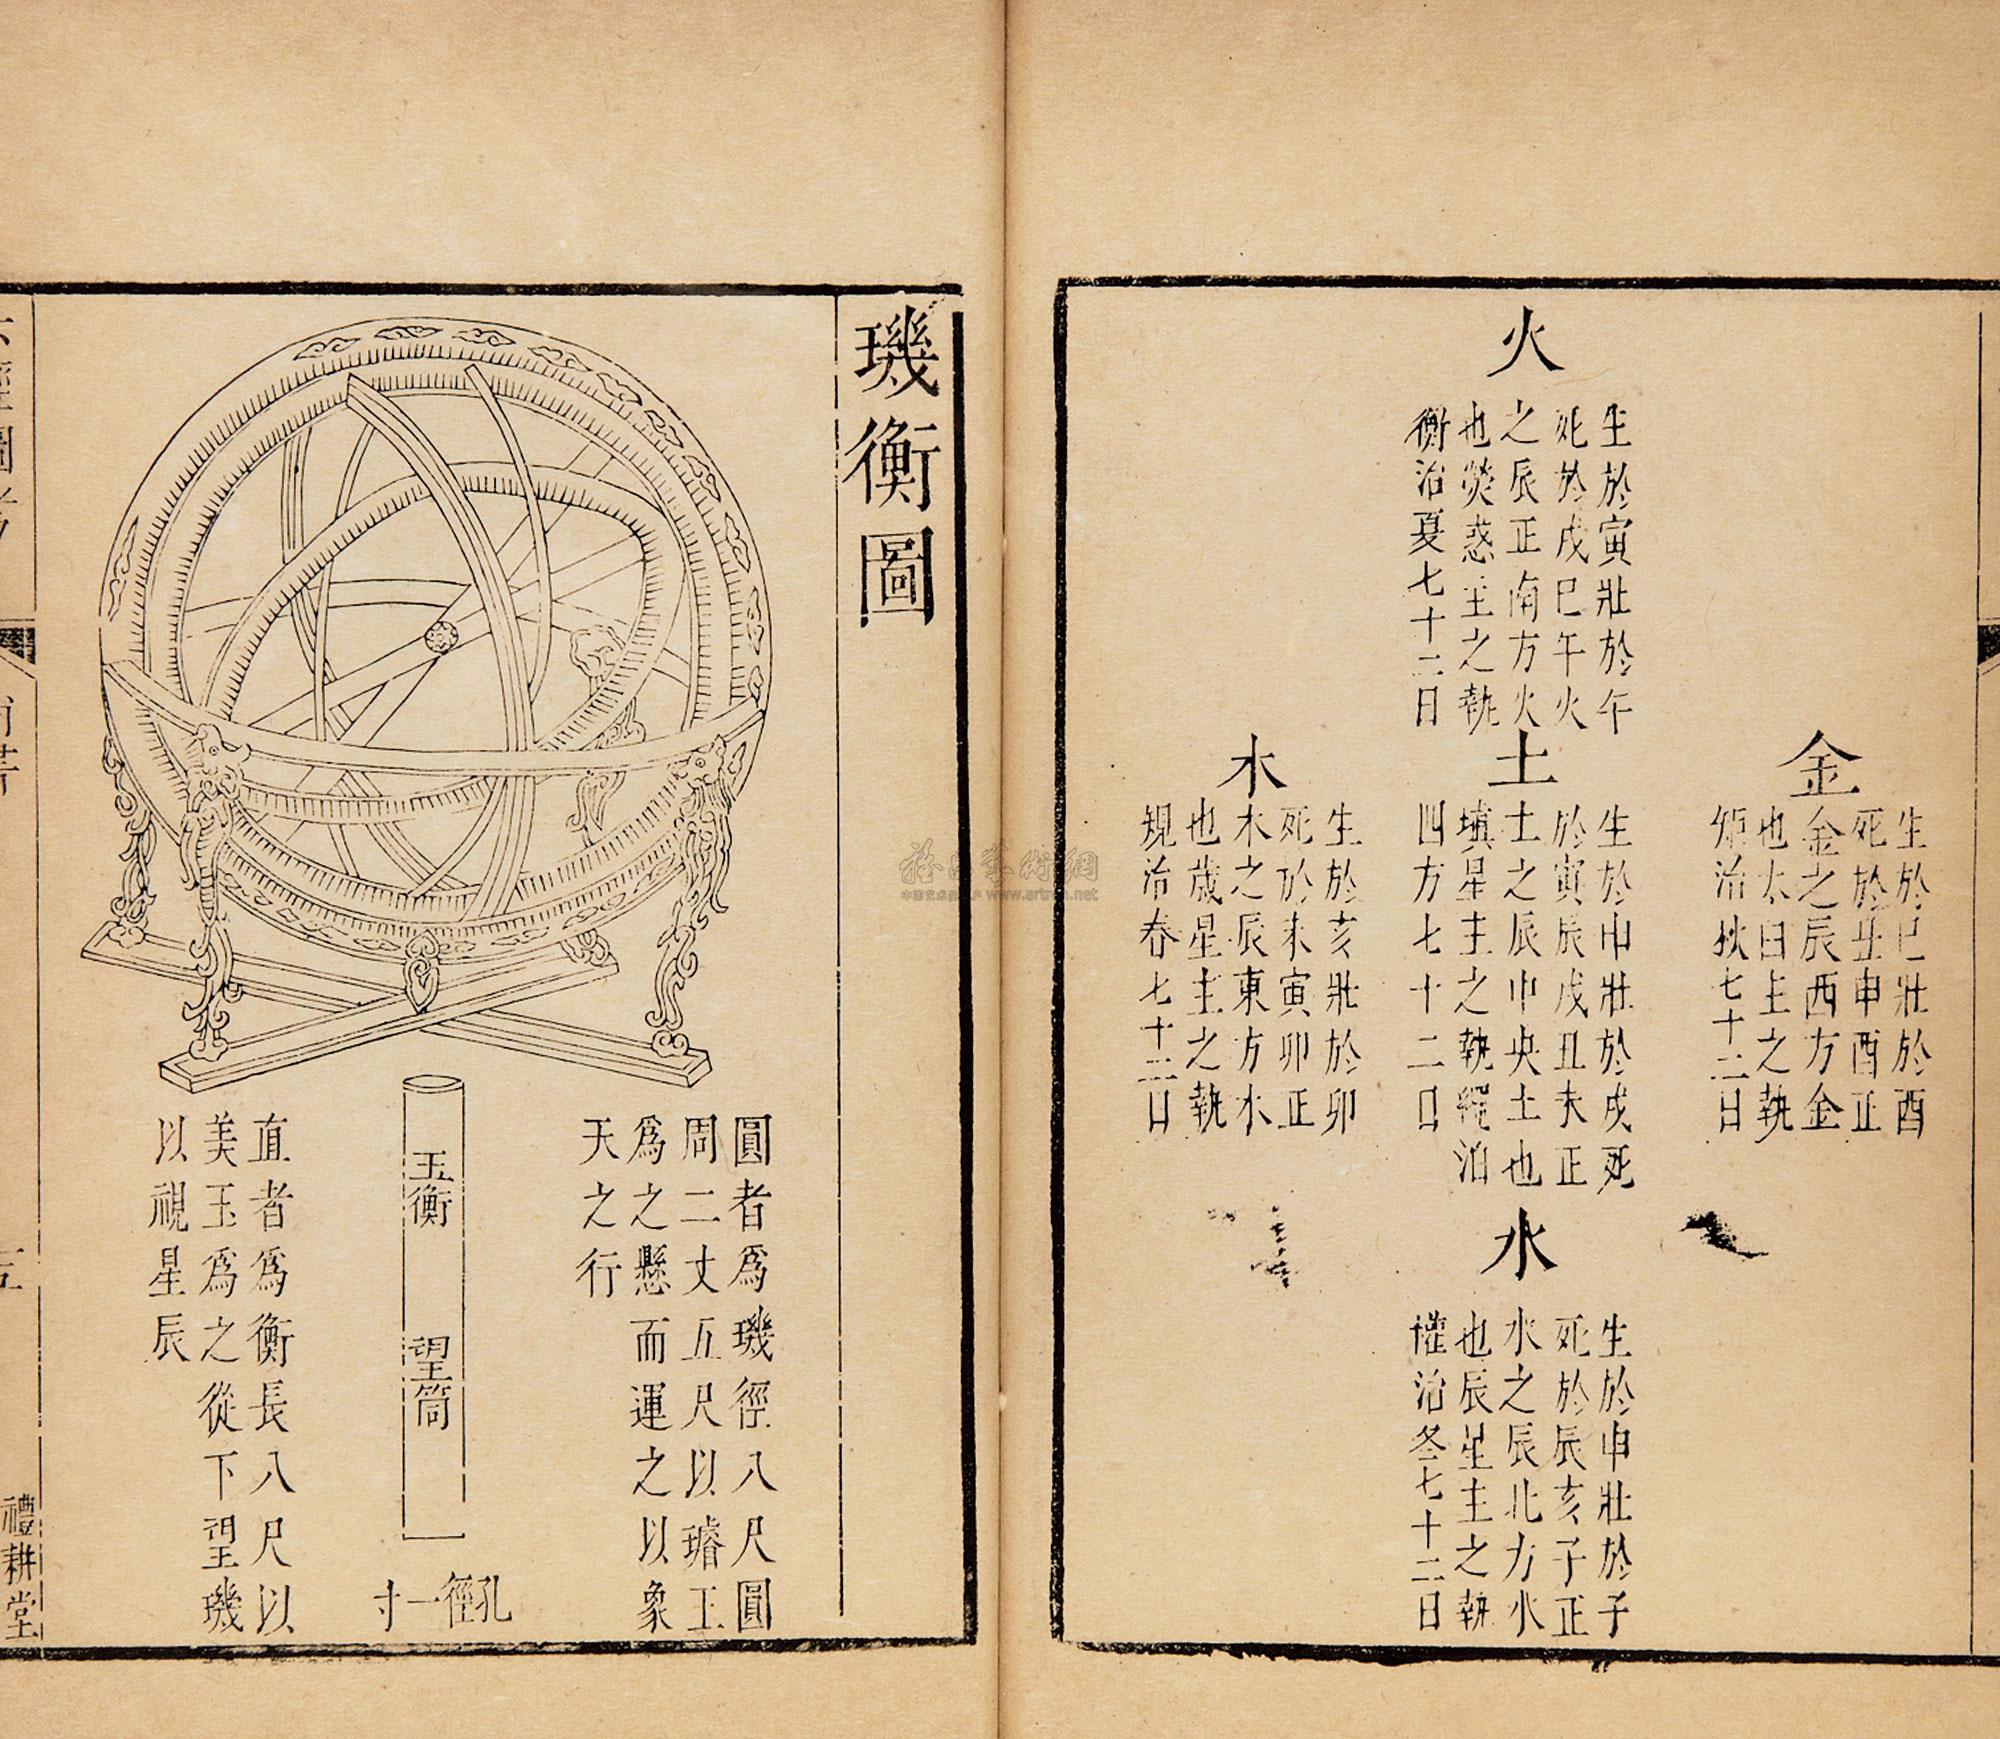 火
生於寅壯於午
死於戌巳午火
之辰正南方火
也熒惑主之執
衡治夏七十二日
金
生於巳壯於酉
死於丑申酉正
金之辰西方金
也太白主之執
矩治秋七十二日
土
生於申壯於戌死
於寅辰戌丑未正
土之辰中央土也
填星主之執繩治
四方七十二日
木
生於亥壯於卯
死於未寅卯正
木之辰東方木
也歲星主之執
規治春七十二日
水
生於申壯於子
死於辰亥子正
水之辰北方水
也辰星主之執
權治冬七十二日
璣衡圖
圓者為璣徑八尺圓
周二丈五尺以璿玉
為之懸而運之以象
天之行
玉衡 望筒
孔徑一寸
直者為衡長八尺以
美玉為之從下望璣
以視星辰
六經圖考
尚書
五
禮耕堂
www.artron.net